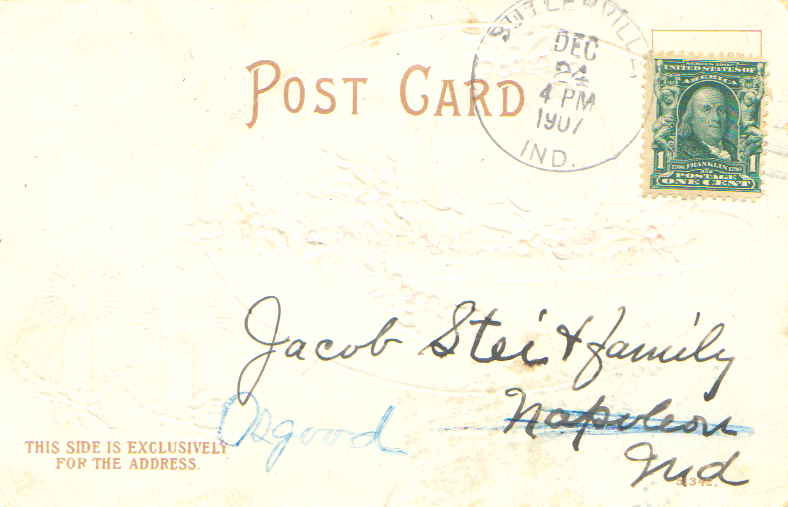 POST CARD
BUTLERVILLE
DEC
24
4 PM
1907
IND.
UNITED STATES OF
AMERICA
1 1
FRANKLIN
POSTAGE
ONE CENT
Jacob Stei & family
Napoleon
Osgood
Ind
THIS SIDE IS EXCLUSIVELY
FOR THE ADDRESS.